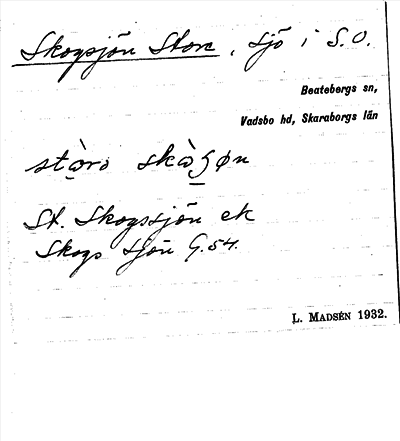 Skogsjön Stora, sjö i S.O.
Beatebergs sn,
Vadsbo hd, Skaraborgs län
St. Skogssjön ek
Skogs sjön G.54.
L. MADSÉN 1932.